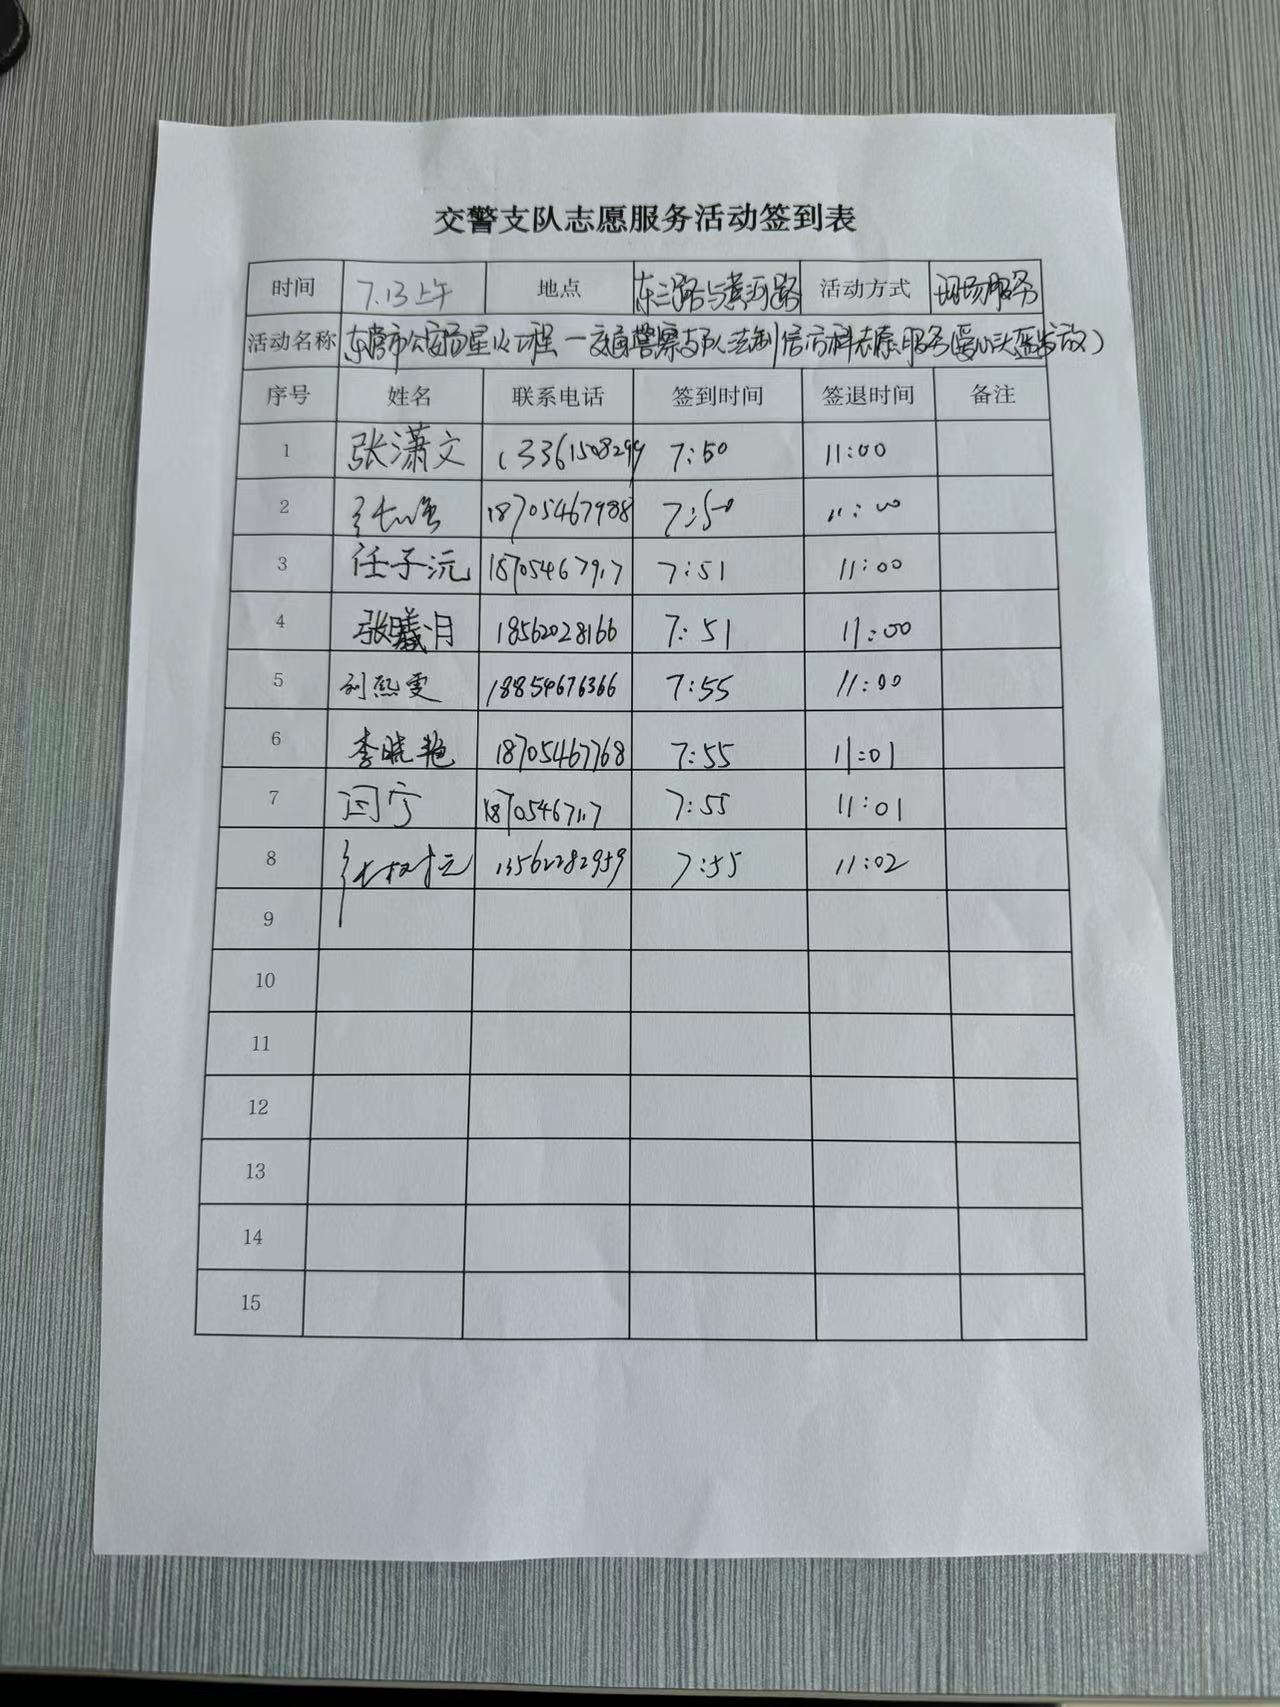 交警支队志愿服务活动签到表
时间 7.13上午 地点 东三路与黄河路 活动方式 现场服务
活动名称 东营市公安局星火工程—交通警察支队法制信访科志愿服务(爱心头盔发放)
序号 姓名 联系电话 签到时间 签退时间 备注
1 张潇文 13361508299 7:50 11:00
2 18705467988 7:50 11:00
3 任子沅 7:51 11:00
4 张曦月 18562028166 7:51 11:00
5 刘熙雯 18854676366 7:55 11:00
6 李晓艳 18705467768 7:55 11:01
7 闫宁 7:55 11:01
8 13562282959 7:55 11:02
9
10
11
12
13
14
15